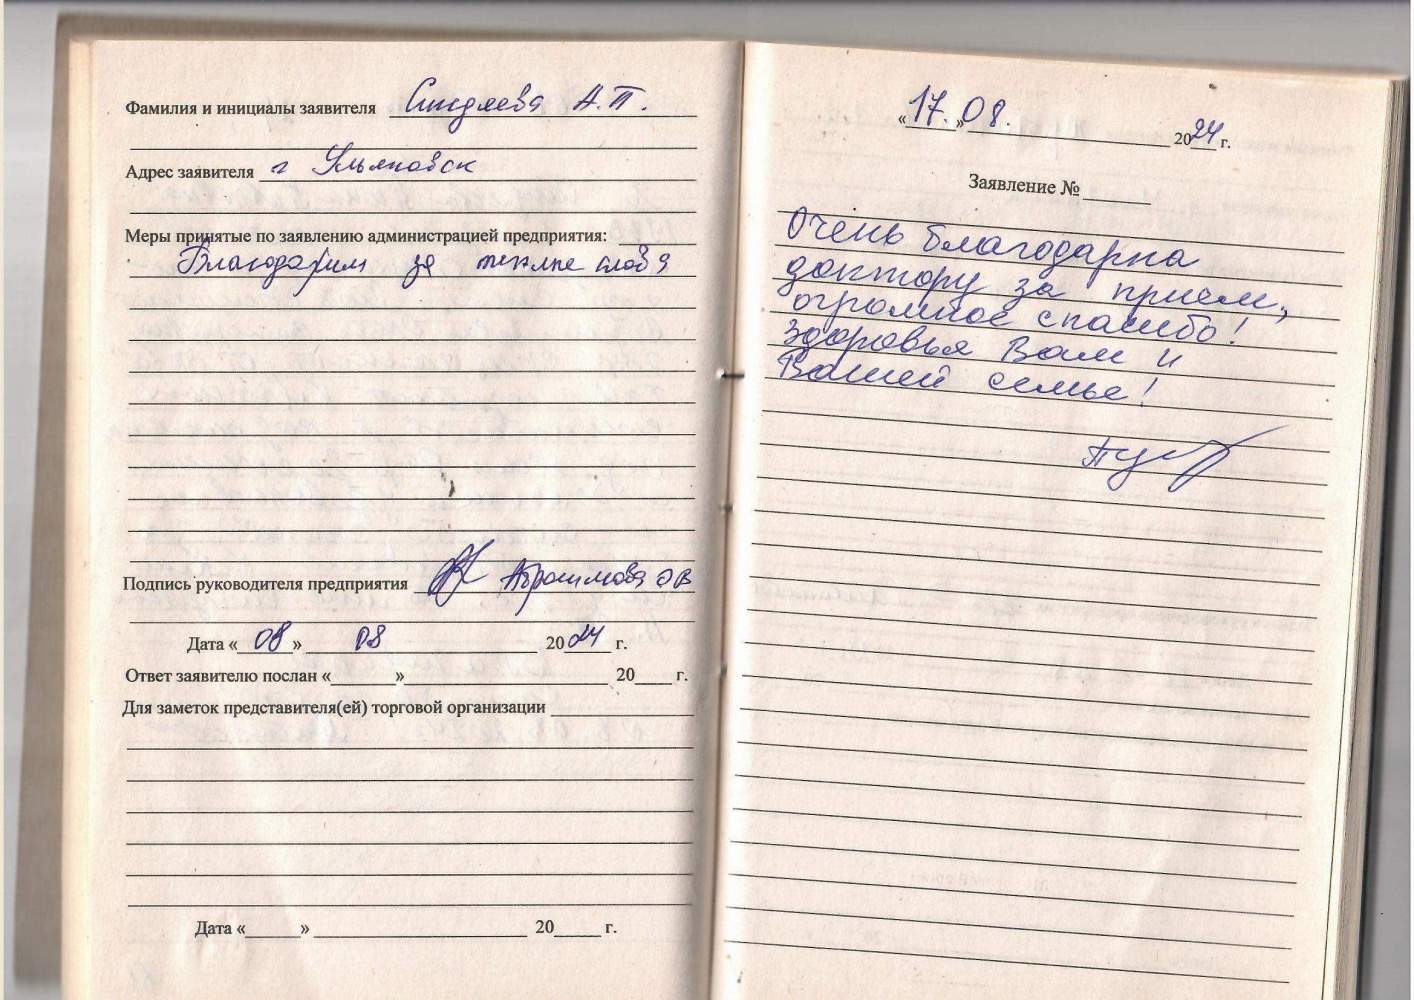 Фамилия и инициалы заявителя Синдяева А.П.
Адрес заявителя г Ульяновск
Меры принятые по заявлению администрацией предприятия:
Благодарим за теплые слова
Подпись руководителя предприятия Абросимова ОВ
Дата «08» 08 2024 г.
Ответ заявителю послан «» 20 г.
Для заметок представителя(ей) торговой организации
Дата «» 20 г.
«17.» 08. 2024 г.
Заявление №
Очень благодарна
доктору за прием,
огромное спасибо!
Здоровья Вам и
Вашей семье!